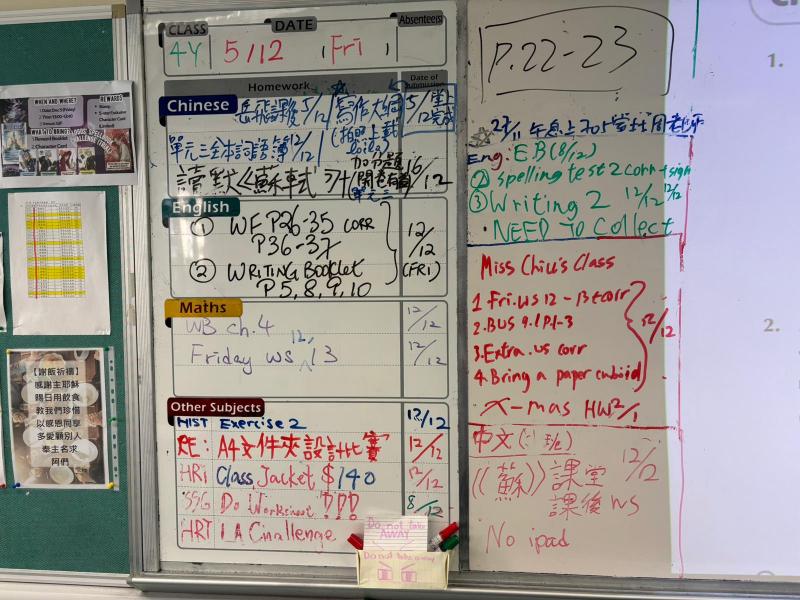 CLASS DATE Absentee(s)
4Y 5/12 (Fri)
Homework Date of Submission
Chinese
岳飛課後 5/12 寫作大綱 5/12 堂上完成
單元三全本詞語簿 12/12
讀默《蘇軾》 加分題 16/12
單元三
English
① WF P26-35 CORR 12/12 (FRI)
P36-37
② WRITING BOOKLET
P 5, 8, 9, 10
Maths
WB ch.4 12/12
Friday ws 12, 13 12/12
Other Subjects
HIST Exercise 2 12/12
RE: A4文件夾設計比賽 12/12
HRT Class Jacket $140 12/12
SSG Do Worksheet !!! 8/12
HRT LA Challenge
Do not take AWAY
Do not take away
P.22-23
Eng. E.B (8/12)
② Spelling test 2 corr + sign 12/12
③ Writing 2 12/12
· NEED TO Collect
Miss Chiu's Class
1. Fri. ws 12 - 13 + corr
2. BUS 9.1 P1-3
3. Extra. ws corr
4. Bring a paper cuboid
12/12
X-mas HW 2/1
中文
《蘇》課堂 12/12
課後 ws
No ipad
1.
2.
WHEN AND WHERE?
REWARDS
【謝飯祈禱】
感謝主耶穌
賜日用飲食
教我們珍惜
以感恩同享
多愛顧別人
奉主名求
阿們